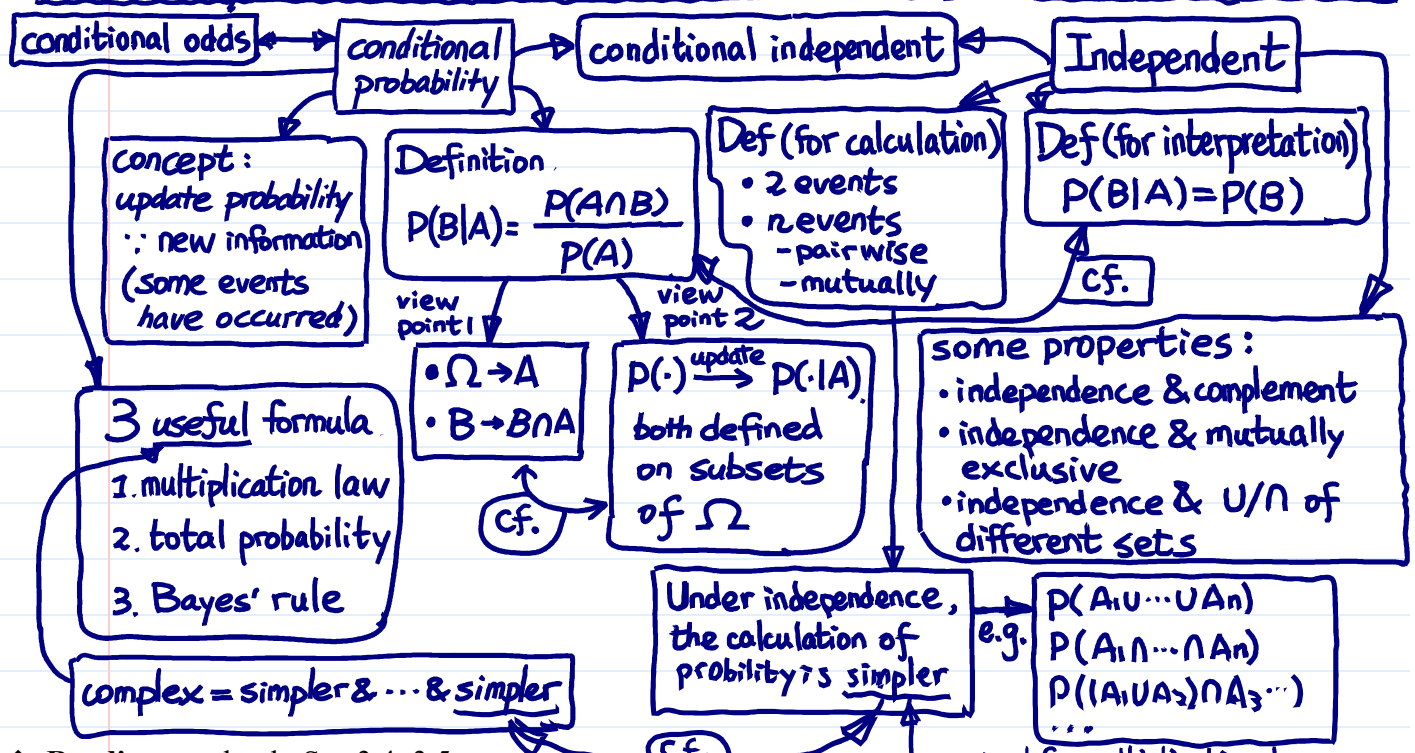 conditional odds
conditional
probability
conditional independent
Independent
concept:
update probability
∵ new information
(some events
have occurred)
Definition
P(B|A)= P(A∩B)
P(A)
Def(for calculation)
• 2 events
• n events
-pairwise
-mutually
Def(for interpretation)
P(B|A)=P(B)
cf.
view
point 1
view
point 2
• Ω→A
• B→B∩A
P(·) update→ P(·|A)
both defined
on subsets
of Ω
cf.
some properties:
• independence & complement
• independence & mutually
exclusive
• independence & ∪/∩ of
different sets
3 useful formula
1. multiplication law
2. total probability
3. Bayes' rule
complex = simpler & ··· & simpler
Under independence,
the calculation of
probility is simpler
e.g.
P(A₁∪···∪An)
P(A₁∩···∩An)
P((A₁∪A₂)∩A₃···)
....
cf.